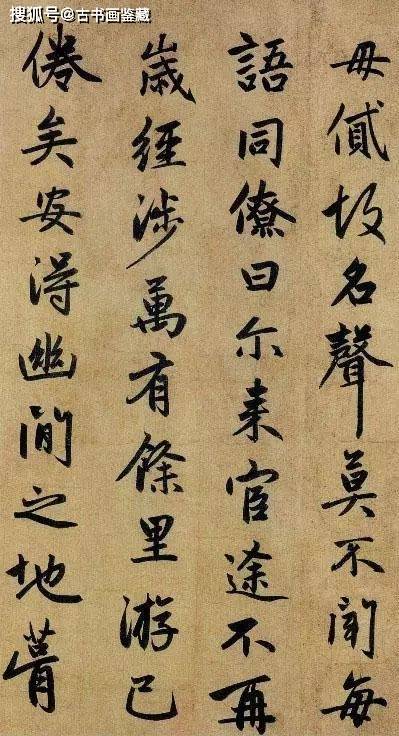 搜狐号@古书画鉴藏
毋貸故名聲莫不聞每
語同僚曰尔来官途不再
歲經涉萬有餘里游已
倦矣安得幽閒之地葺